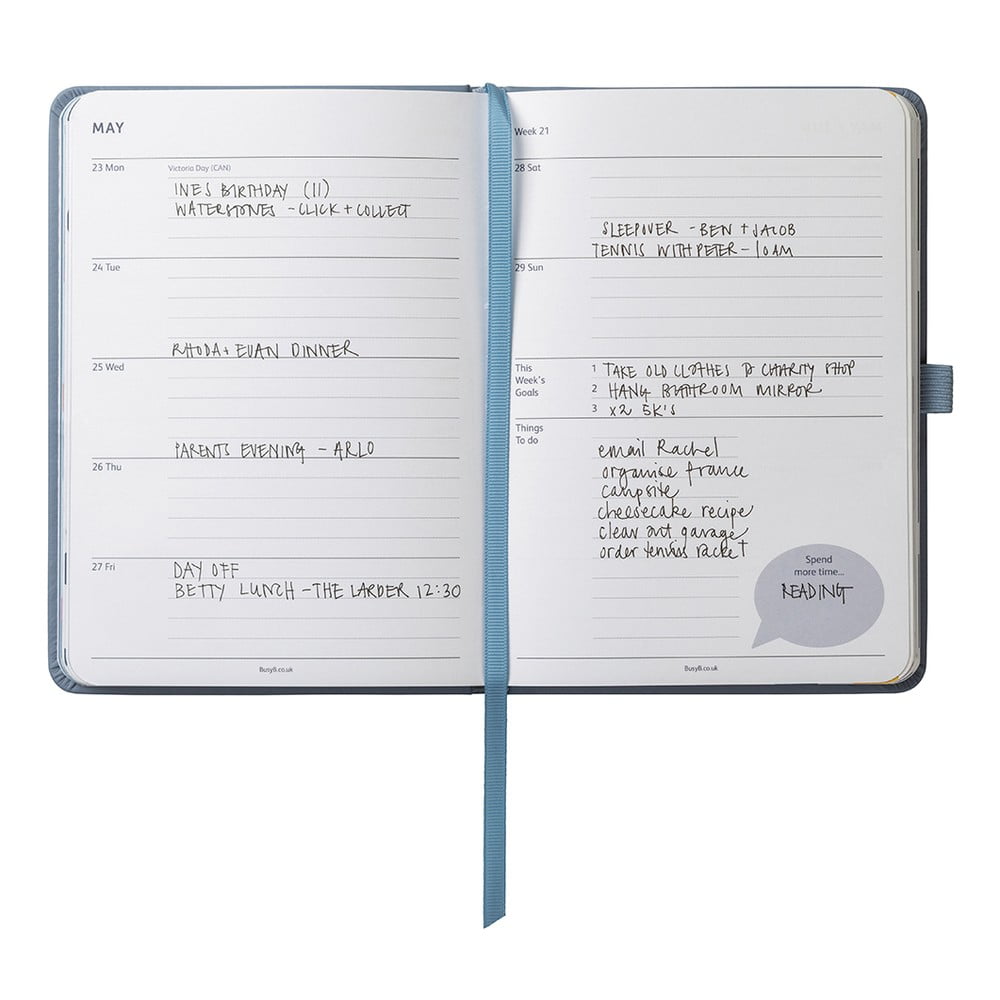 MAY
23 Mon
Victoria Day (CAN)
INES BIRTHDAY (11)
WATERSTONES - CLICK + COLLECT
24 Tue
RHODA + EUAN DINNER
25 Wed
PARENTS EVENING - ARLO
26 Thu
27 Fri
DAY OFF
BETTY LUNCH - THE LARDER 12:30
BusyB.co.uk
Week 21
28 Sat
SLEEPOVER - BEN + JACOB
TENNIS WITH PETER - 10AM
29 Sun
This
Week's
Goals
1 TAKE OLD CLOTHES TO CHARITY SHOP
2 HANG BATHROOM MIRROR
3 x2 5K'S
Things
To do
email Rachel
organise france
campsite
cheesecake recipe
clear out garage
order tennis racket
Spend
more time...
READING
BusyB.co.uk